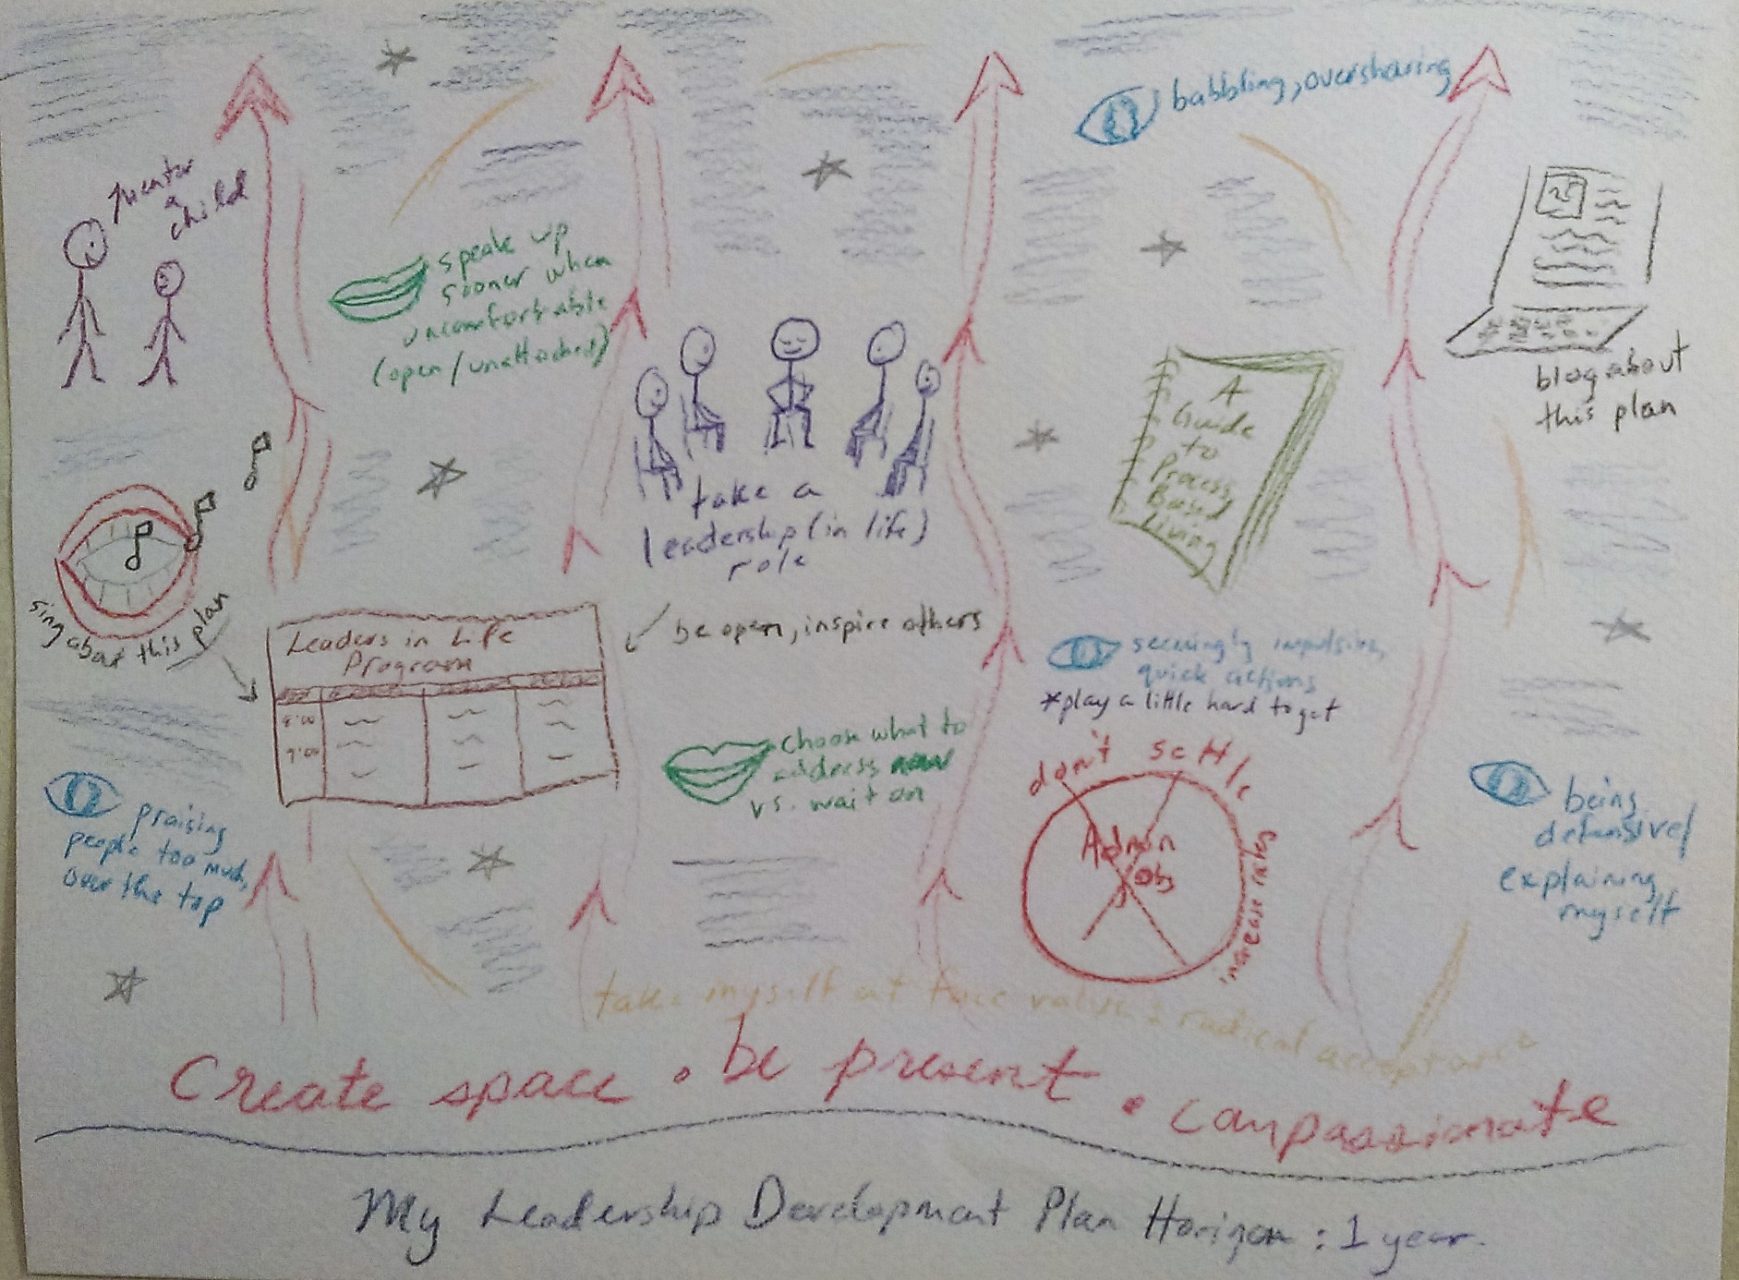 babbling, oversharing
mentor
a
child
speak up
sooner when
uncomfortable
(open/unattached)
blog about
this plan
A
Guide
to
Process
Based
Living
take a
leadership (in life)
role
sing about this plan
Leaders in Life
Program
8:00
9:00
be open, inspire others
seemingly impulsive,
quick actions
*play a little hard to get
choose what to
address now
vs. wait on
don't settle
Admin
Jobs
increase rates
praising
people too much,
over the top
being
defensive/
explaining
myself
take myself at face value : radical acceptance
Create space • be present • compassionate
My Leadership Development Plan Horizon : 1 year.